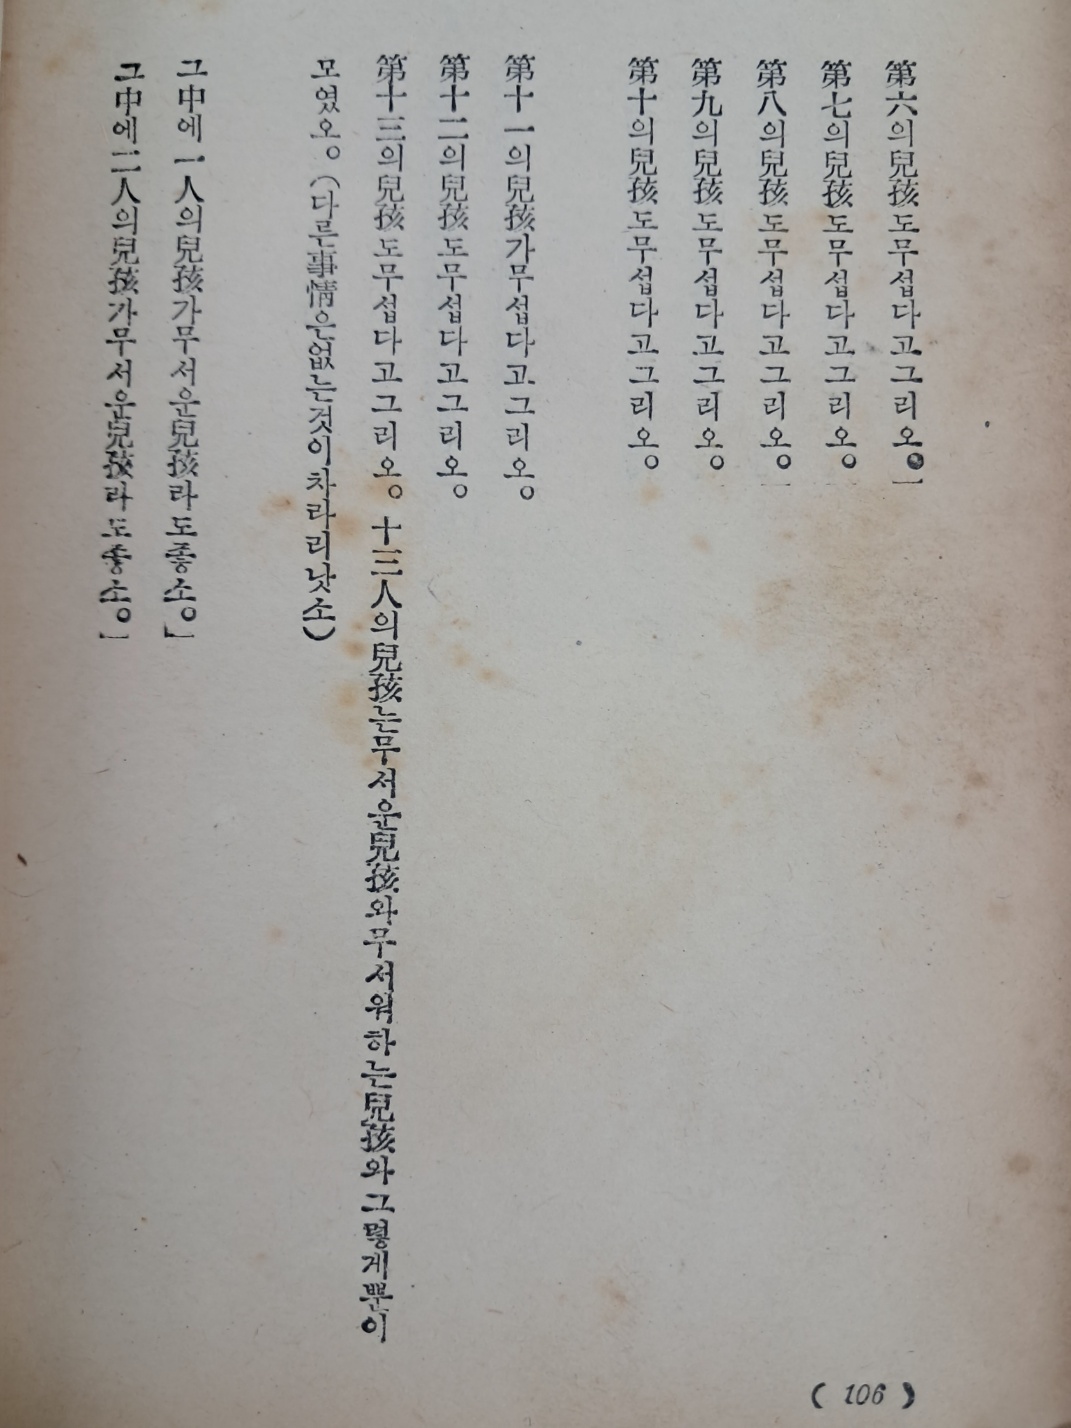 第六의兒孩도무섭다고그리오。
第七의兒孩도무섭다고그리오。
第八의兒孩도무섭다고그리오。
第九의兒孩도무섭다고그리오。
第十의兒孩도무섭다고그리오。
第十一의兒孩가무섭다고그리오。
第十二의兒孩도무섭다고그리오。
第十三의兒孩도무섭다고그리오。十三人의兒孩는무서운兒孩와무서워하는兒孩와그렇게뿐이
모였오。(다른事情은없는것이차라리낫소)
그中에一人의兒孩가무서운兒孩라도좋소。」
그中에二人의兒孩가무서운兒孩라도좋소。」
( 106 )